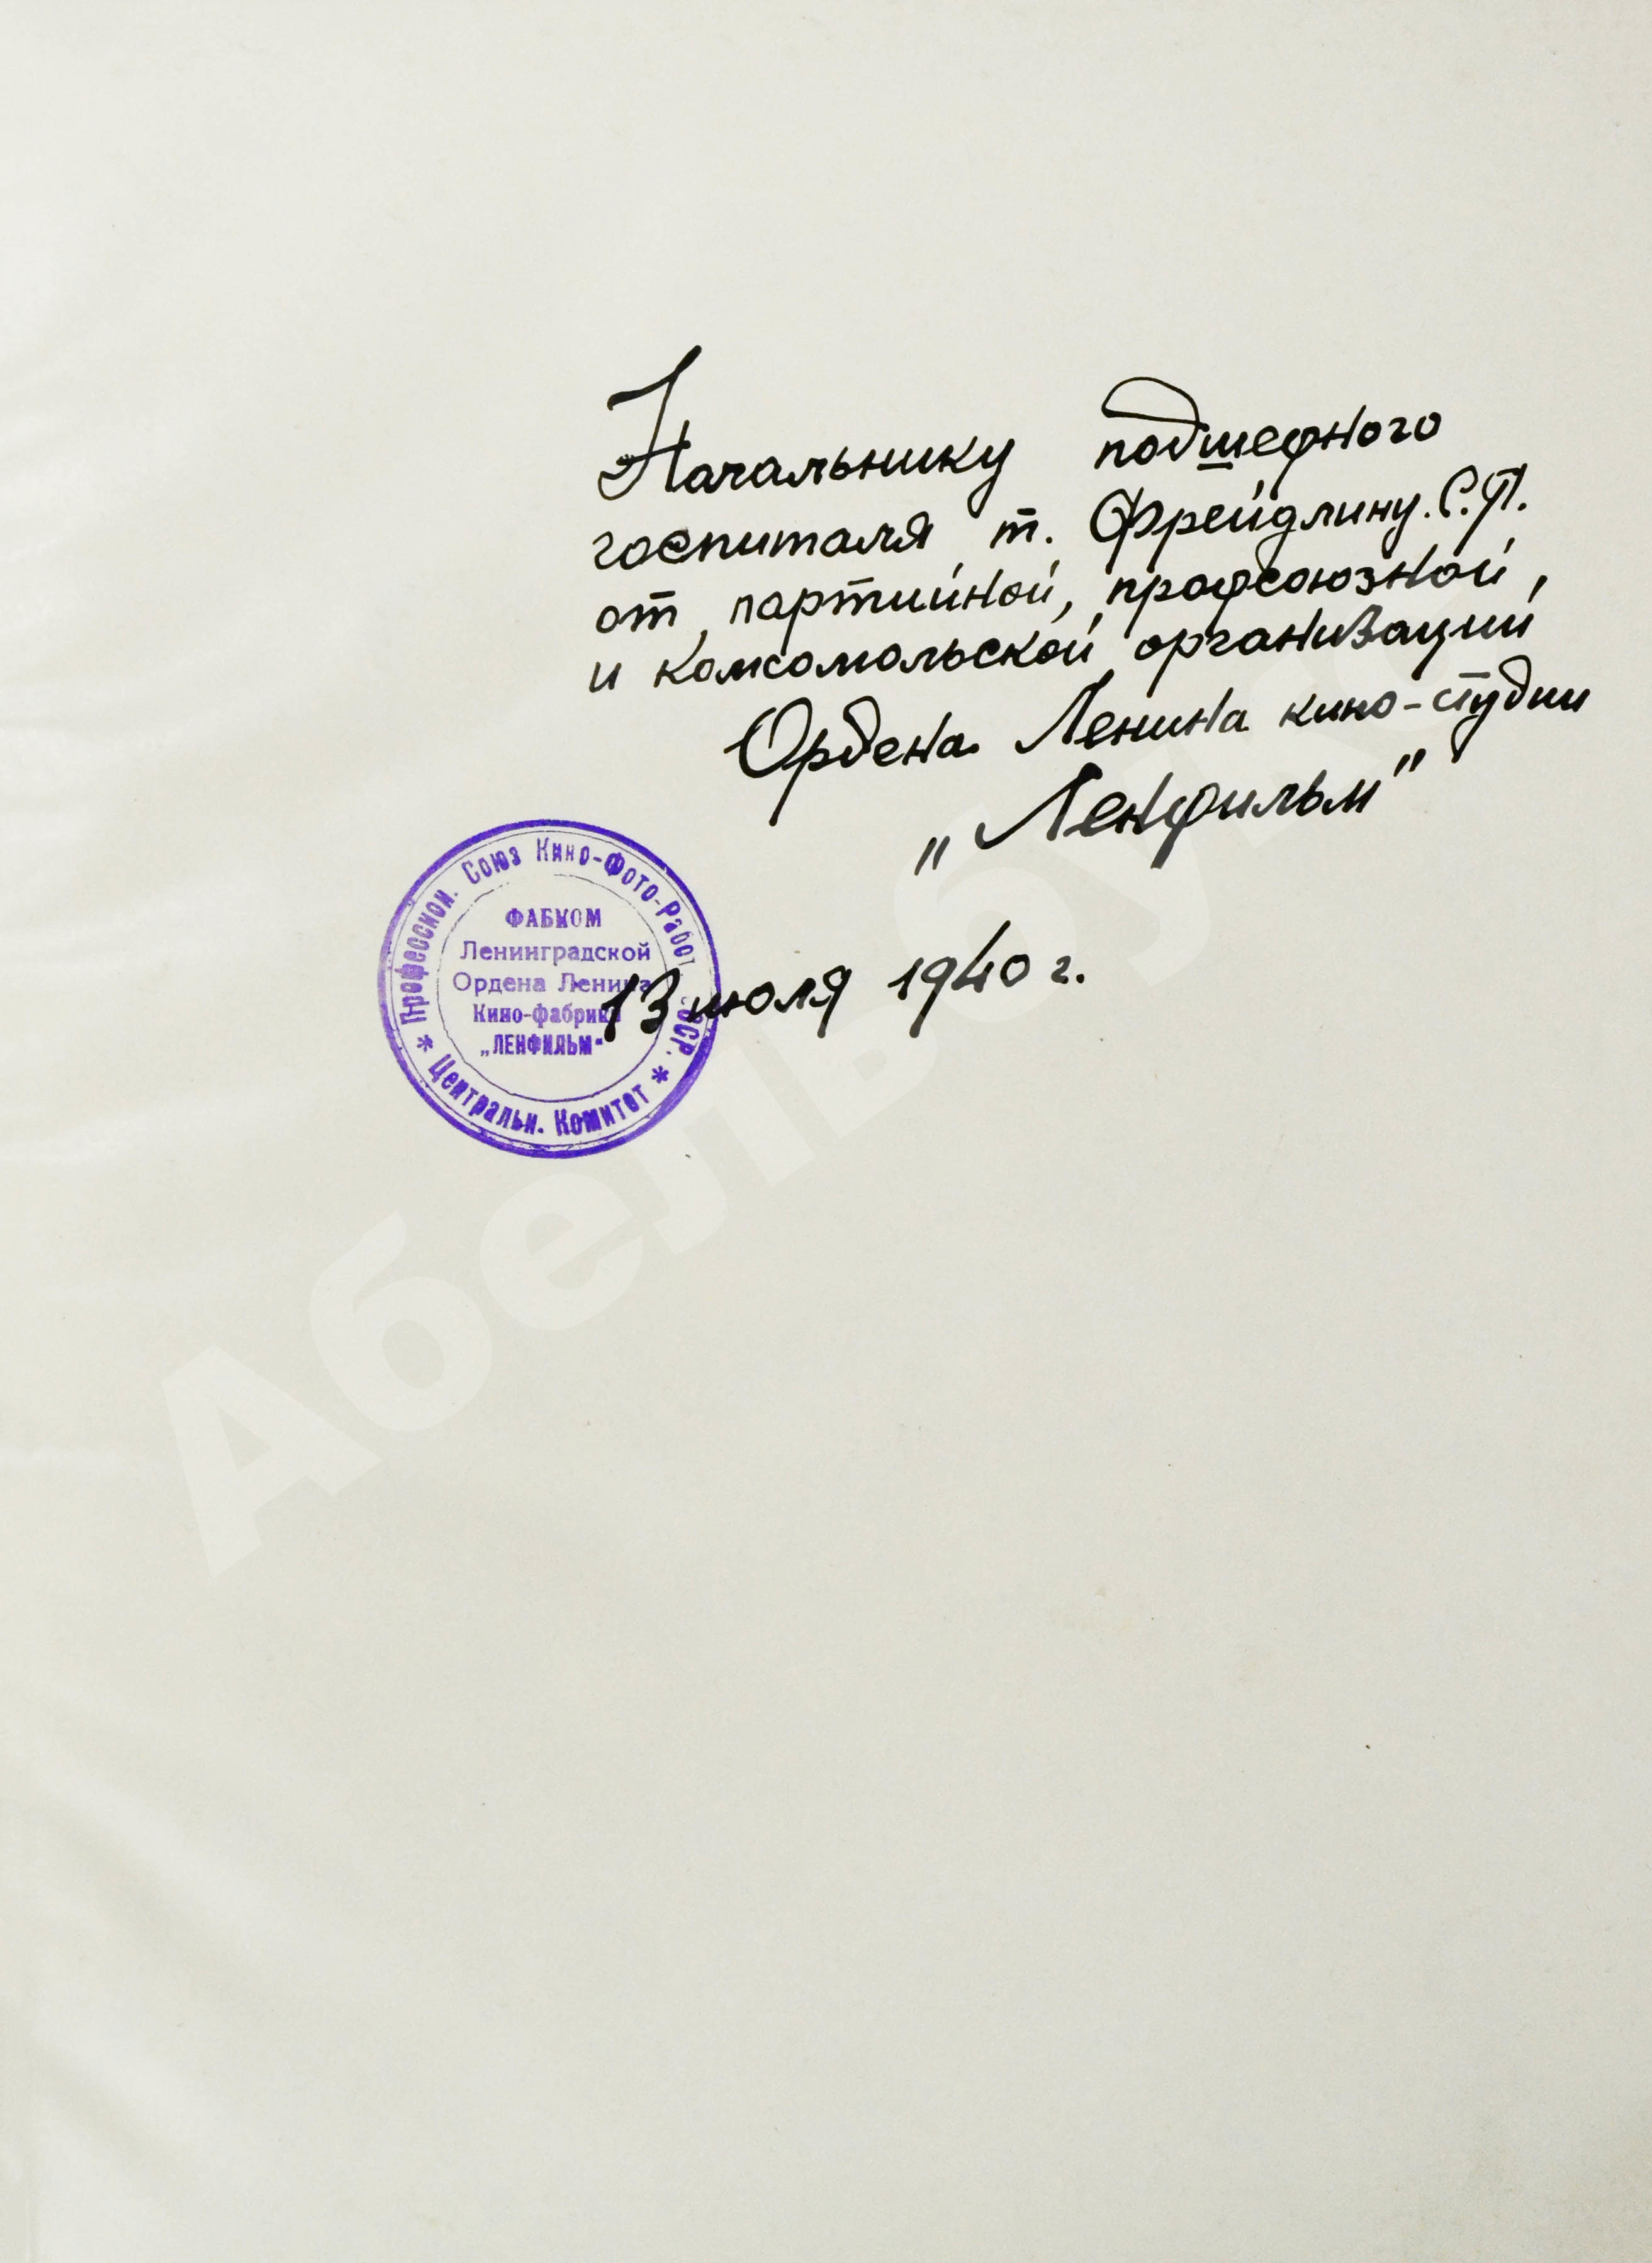 Начальнику подшефного
госпиталя т. Фрейдлину. С.П.
от партийной, профсоюзной,
и комсомольской организаций
Ордена Ленина кино-студии
„Ленфильм"
13 июля 1940 г.
Профессион. Союз Кино-Фото-Работ СССР.
* Центральн. Комитет *
ФАБКОМ
Ленинградской
Ордена Ленина
Кино-фабрики
„ЛЕНФИЛЬМ"